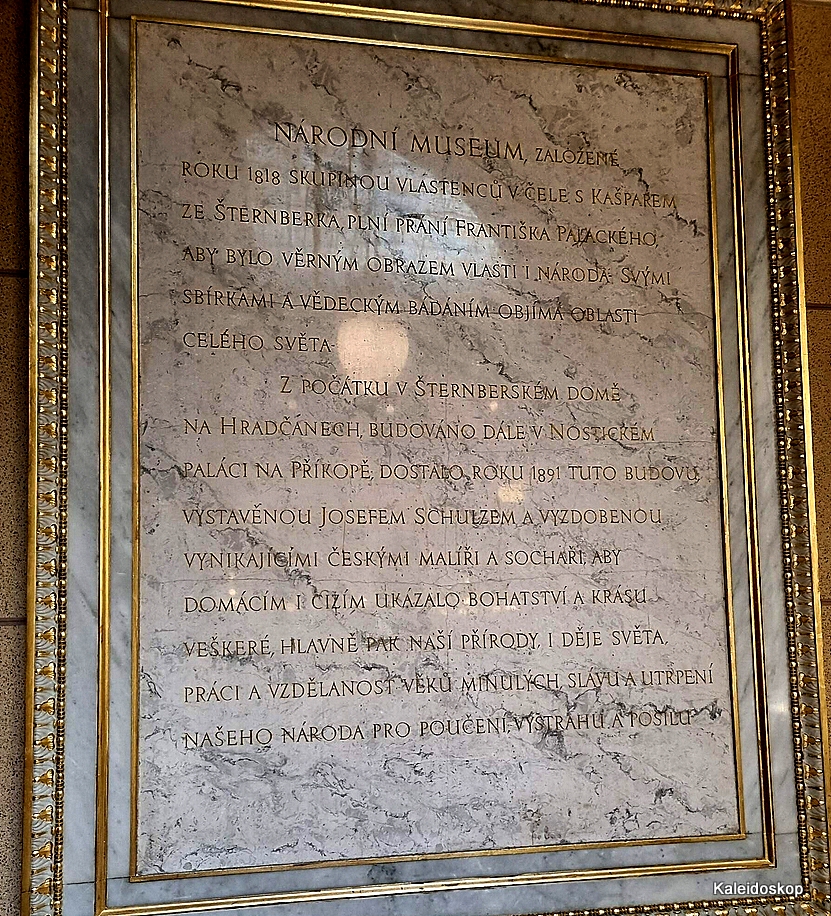 NÁRODNÍ MUSEUM, ZALOŽENÉ
ROKU 1818 SKUPINOU VLASTENCŮ V ČELE S KAŠPAREM
ZE ŠTERNBERKA, PLNÍ PŘÁNÍ FRANTIŠKA PALACKÉHO,
ABY BYLO VĚRNÝM OBRAZEM VLASTI I NÁRODA. SVÝMI
SBÍRKAMI A VĚDECKÝM BÁDÁNÍM OBJÍMÁ OBLASTI
CELÉHO SVĚTA.
Z POČÁTKU V ŠTERNBERSKÉM DOMĚ
NA HRADČANECH, BUDOVÁNO DÁLE V NOSTICKÉM
PALÁCI NA PŘÍKOPĚ, DOSTALO ROKU 1891 TUTO BUDOVU,
VYSTAVĚNOU JOSEFEM SCHULZEM A VYZDOBENOU
VYNIKAJÍCÍMI ČESKÝMI MALÍŘI A SOCHAŘI, ABY
DOMÁCÍM I CIZÍM UKÁZALO BOHATSTVÍ A KRÁSU
VEŠKERÉ, HLAVNĚ PAK NAŠÍ PŘÍRODY, I DĚJE SVĚTA,
PRÁCI A VZDĚLANOST VĚKŮ MINULÝCH, SLÁVU A UTRPENÍ
NAŠEHO NÁRODA PRO POUČENÍ, VÝSTRAHU A POSILU
Kaleidoskop